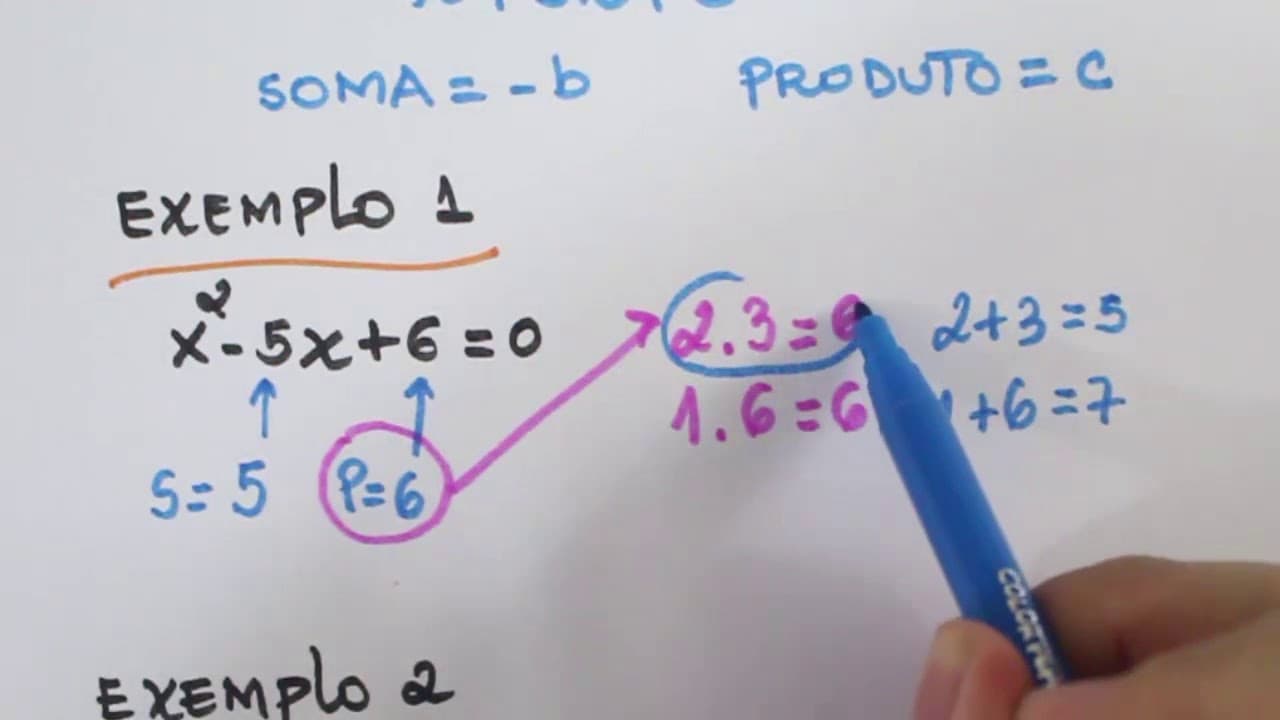 SOMA = -b PRODUTO = c
EXEMPLO 1
x² - 5x + 6 = 0
2.3 = 6 2+3 = 5
1.6 = 6 +6 = 7
S = 5 P = 6
EXEMPLO 2